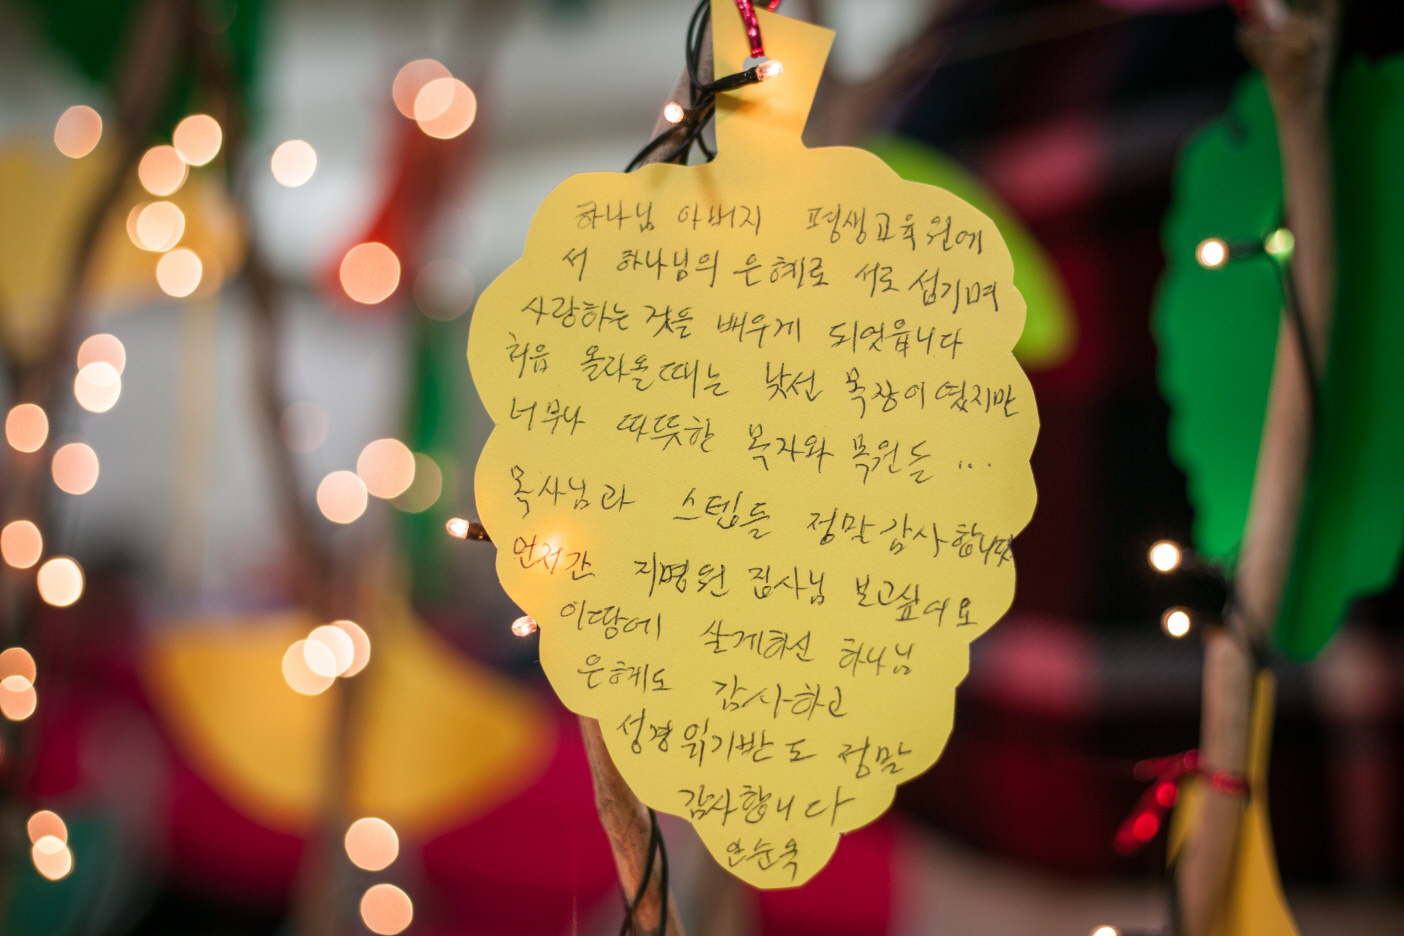 하나님 아버지 평생교육원에
서 하나님의 은혜로 서로 섬기며
사랑하는 것을 배우게 되었읍니다
처음 올라올때는 낯선 목장이였지만
너무나 따뜻한 목자와 목원들 ...
목사님과 스텝들 정말 감사합니다
언저간 지명원 집사님 보고싶어요
이땅에 살게하신 하나님
은혜도 감사하고
성경읽기반도 정말
감사합니다
안순옥